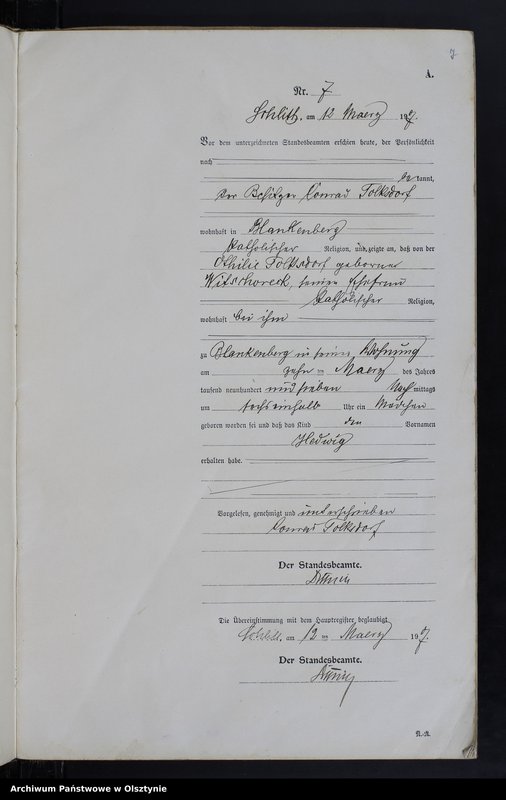 7
A.
Nr. 7
Schlitt, am 12 Maerz 1907.
Vor dem unterzeichneten Standesbeamten erschien heute, der Persönlichkeit
nach
kannt,
der Besitzer Conrad Tolksdorf
wohnhaft in Blankenberg
katholischer Religion, und zeigte an, daß von der
Othilie Tolksdorf geborene
Witschoreck, seiner Ehefrau
katholischer Religion,
wohnhaft bei ihm
zu Blankenberg in seiner Wohnung
am zehn ten Maerz des Jahres
tausend neunhundert und sieben Nachmittags
um sechs einhalb Uhr ein Mädchen
geboren worden sei und daß das Kind den Vornamen
Hedwig
erhalten habe.
Vorgelesen, genehmigt und unterschrieben
Conrad Tolksdorf
Der Standesbeamte.
Die Übereinstimmung mit dem Hauptregister beglaubigt
Schlitt, am 12 ten Maerz 1907.
Der Standesbeamte.
Archiwum Państwowe w Olsztynie